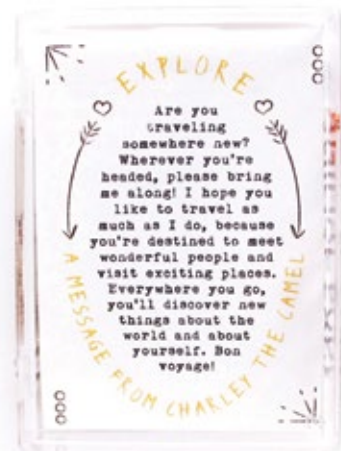 EXPLORE
Are you
traveling
somewhere new?
Wherever you're
headed, please bring
me along! I hope you
like to travel as
much as I do, because
you're destined to meet
wonderful people and
visit exciting places.
Everywhere you go,
you'll discover new
things about the
world and about
yourself. Bon
voyage!
A MESSAGE FROM CHARLEY THE CAMEL